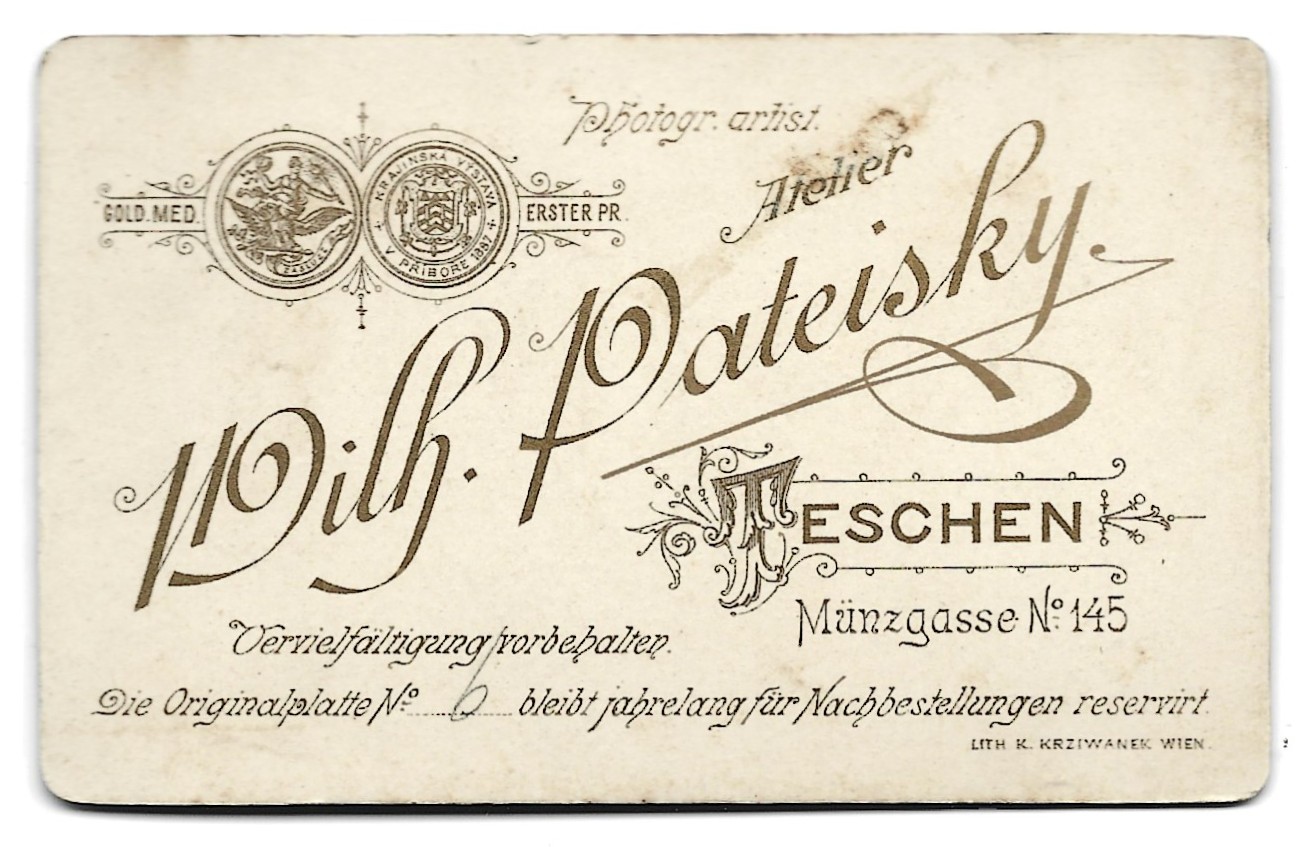 Photogr. artist.
Atelier
GOLD. MED.
KRAJINSKÁ VÝSTAVA
V PŘÍBOŘE 1887
ERSTER PR.
Wilh. Pateisky.
TESCHEN
Münzgasse No. 145
Vervielfältigung vorbehalten.
Die Originalplatte No. 6 bleibt jahrelang für Nachbestellungen reservirt.
LITH K. KRZIWANEK WIEN.